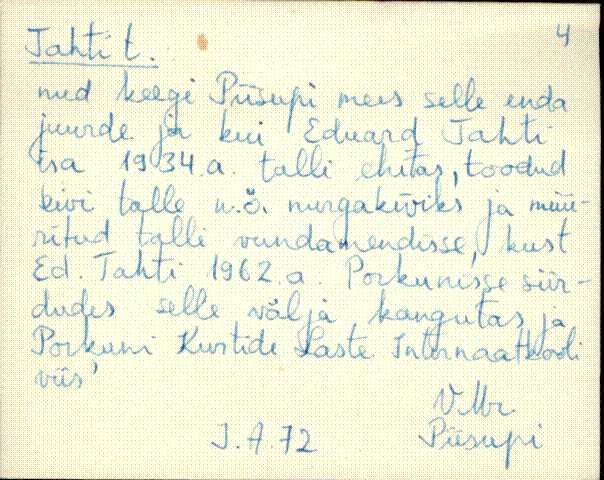 Tahti t.
4
nud keegi Piisupi mees selle enda
juurde ja kui Eduard Tahti
isa 1934.a. talli ehitas, toodud
kivi talle n.ö. nurgakiviks ja müü-
ritud talli vundamendisse, kust
Ed. Tahti 1962.a. Porkunisse siir-
dudes selle välja kangutas ja
Porkuni Kurtide Laste Internaatkooli
viis
Piisupi